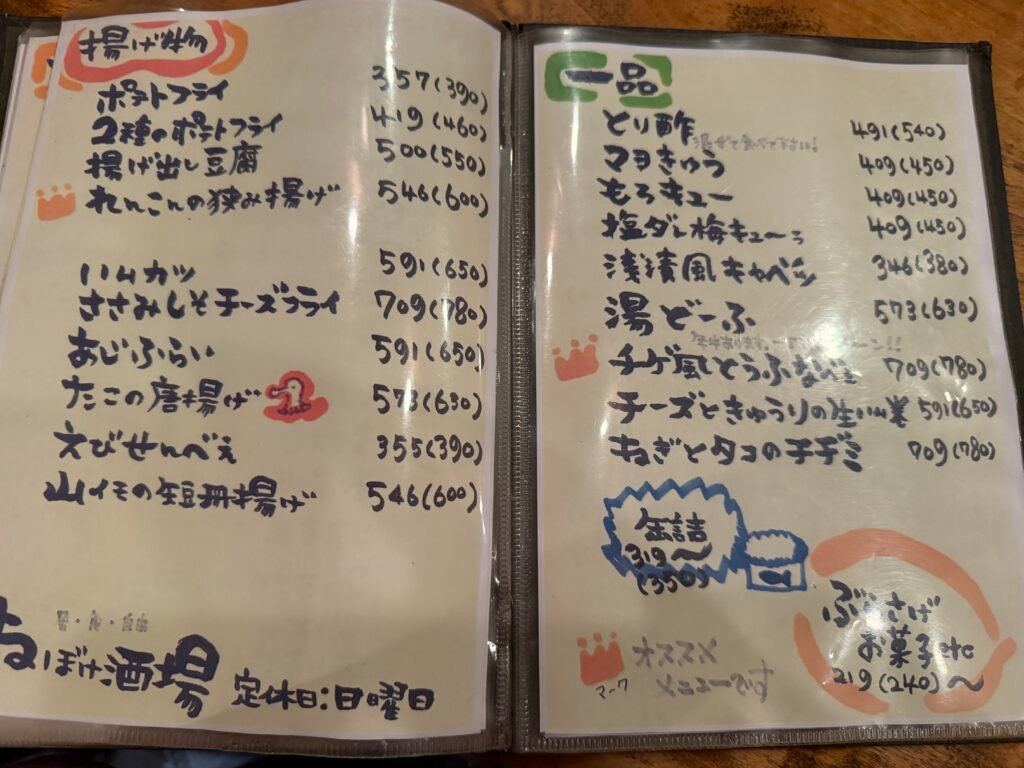 揚げ物
ポテトフライ 357(390)
2種のポテトフライ 419(460)
揚げ出し豆腐 500(550)
れんこんの狭み揚げ 546(600)
ハムカツ 591(650)
ささみしそチーズフライ 709(780)
あじふらい 591(650)
たこの唐揚げ 573(630)
えびせんべえ 355(390)
山イモの短冊揚げ 546(600)
ねぼけ酒場 定休日:日曜日
一品
とり酢 491(540)
混ぜて食べて下さい!
マヨきゅう 409(450)
もろキュー 409(450)
塩ダレ梅キューぅ 409(450)
浅漬風キャベツ 346(380)
湯どーふ 573(630)
チゲ風とうふ 709(780)
チーズときゅうりの生ハム 591(650)
ねぎとタコのチヂミ 709(780)
缶詰
319〜
(350)
ぶらさげ
お菓子etc
219(240)〜
マーク
オススメ
メニューです